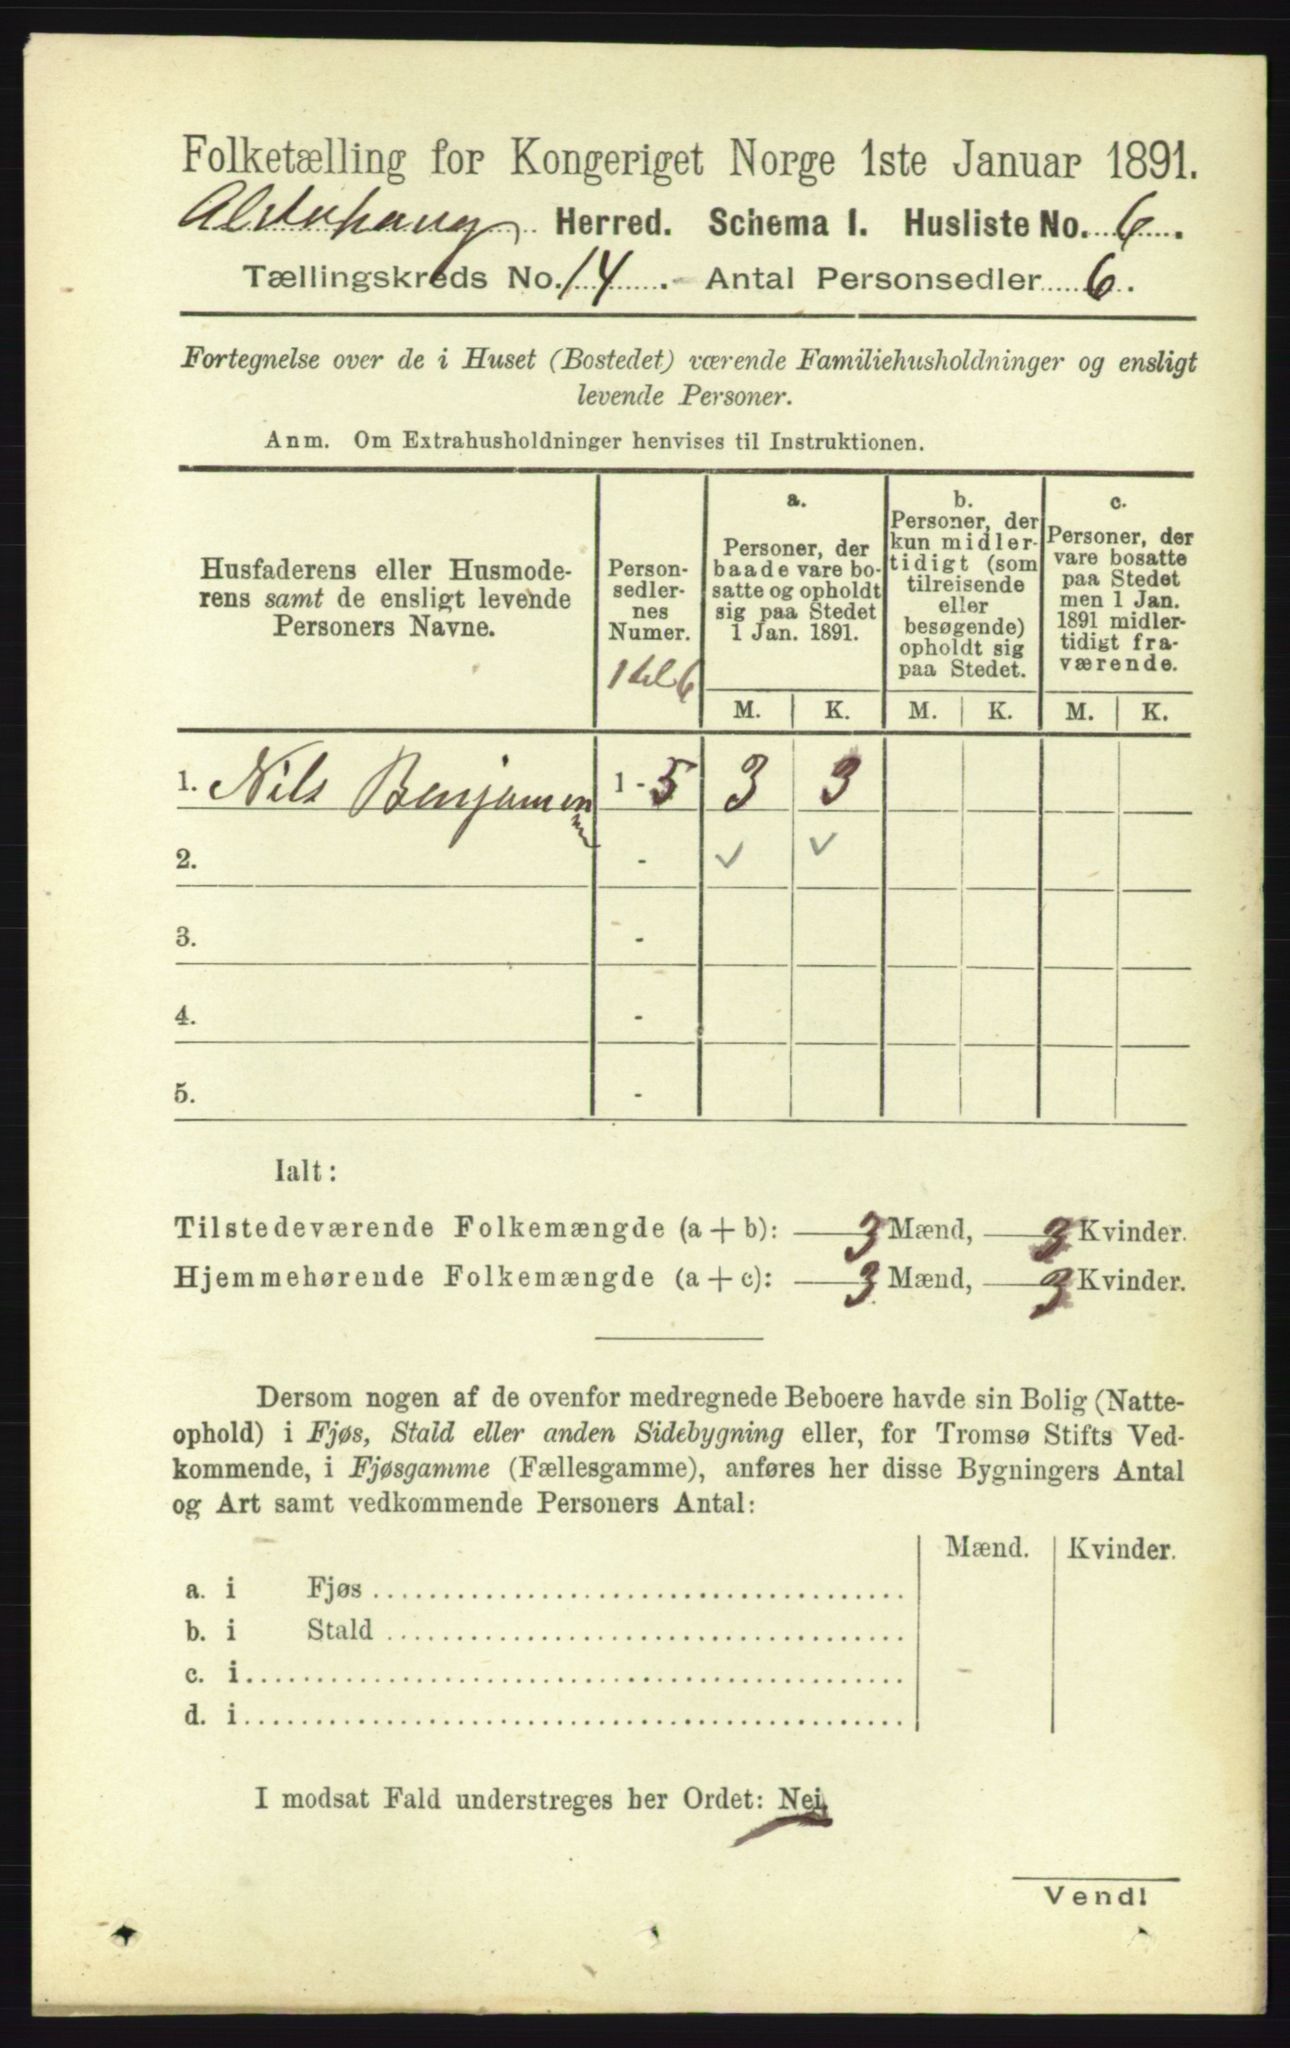 Folketælling for Kongeriget Norge 1ste Januar 1891.
Alstahaug Herred. Schema I. Husliste No. 6.
Tællingskreds No. 14. Antal Personsedler 6.
Fortegnelse over de i Huset (Bostedet) værende Familiehusholdninger og ensligt
levende Personer.
Anm. Om Extrahusholdninger henvises til Instruktionen.
Husfaderens eller Husmode-
rens samt de ensligt levende
Personers Navne.
Person-
sedler-
nes
Numer.
1 til 6
a.
Personer, der
baade vare bo-
satte og opholdt
sig paa Stedet
1 Jan. 1891.
b.
Personer, der
kun midler-
tidigt (som
tilreisende
eller
besøgende)
opholdt sig
paa Stedet.
c.
Personer, der
vare bosatte
paa Stedet
men 1 Jan.
1891 midler-
tidigt fra-
værende.
M. K. M. K. M. K.
1. Nils Benjamin 1 - 5 3 3
2. - ✓ ✓
3. -
4. -
5. -
Ialt:
Tilstedeværende Folkemængde (a + b): 3 Mænd, 3 Kvinder.
Hjemmehørende Folkemængde (a + c): 3 Mænd, 3 Kvinder.
Dersom nogen af de ovenfor medregnede Beboere havde sin Bolig (Natte-
ophold) i Fjøs, Stald eller anden Sidebygning eller, for Tromsø Stifts Ved-
kommende, i Fjøsgamme (Fællesgamme), anføres her disse Bygningers Antal
og Art samt vedkommende Personers Antal:
Mænd. Kvinder.
a. i Fjøs
b. i Stald
c. i
d. i
I modsat Fald understreges her Ordet: Nei.
Vend!